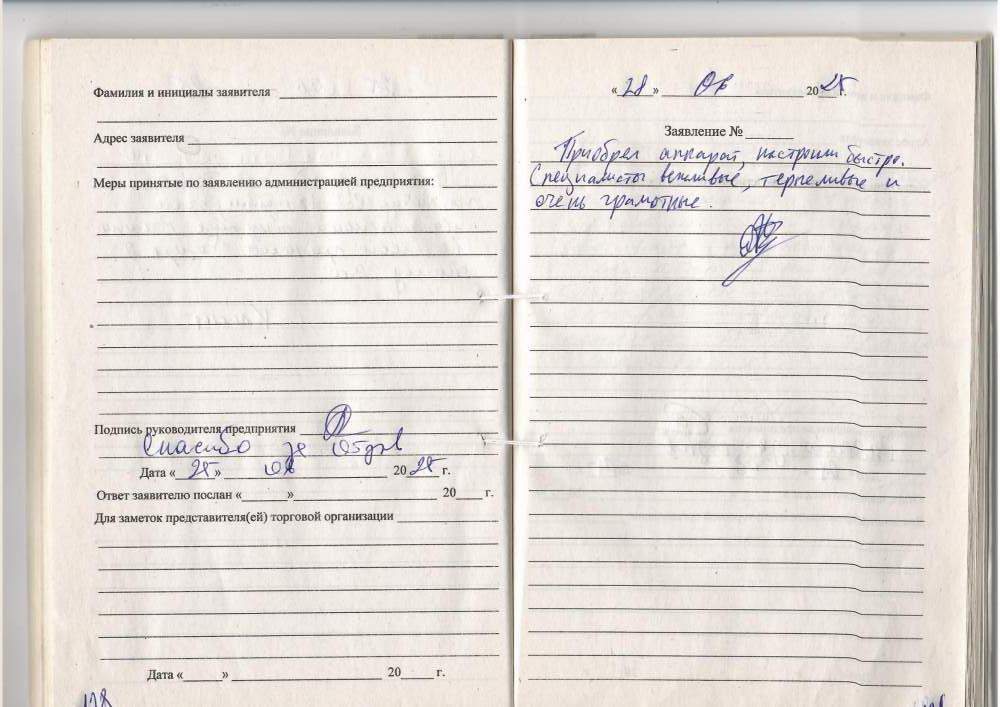 Фамилия и инициалы заявителя
Адрес заявителя
Меры принятые по заявлению администрацией предприятия:
Подпись руководителя предприятия
Спасибо за отзыв
Дата « » 20 г.
Ответ заявителю послан « » 20 г.
Для заметок представителя(ей) торговой организации
Дата « » 20 г.
128
«28» 08 20 г.
Заявление №
Приобрел аппарат, настроили быстро.
Специалисты вежливые, терпеливые и
очень грамотные.